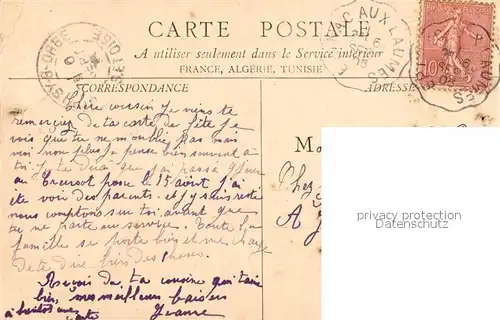 CARTE POSTALE
A utiliser seulement dans le Service intérieur
FRANCE, ALGÉRIE, TUNISIE
CORRESPONDANCE
ADRESSE
Chère cousin Je viens te
remercier de ta carte de fête Je
vois que tu ne m'oublie pas mais
moi non plus Je pense bien souvent à
toi Je te dirai que j'ai passé
au Creusot pour le 15 août j'ai
été voir des parents. et j'y suis resté
nous comptons sur toi avant que
tu ne parte au service. Toute la
famille se porte bien et me charge
de te dire bien des choses.
Revoir de ta cousine qui t'aime
bien, mes meilleurs baisers
Jeanne
carte
M
Chez
A
10
privacy protection
www.oldthing.de